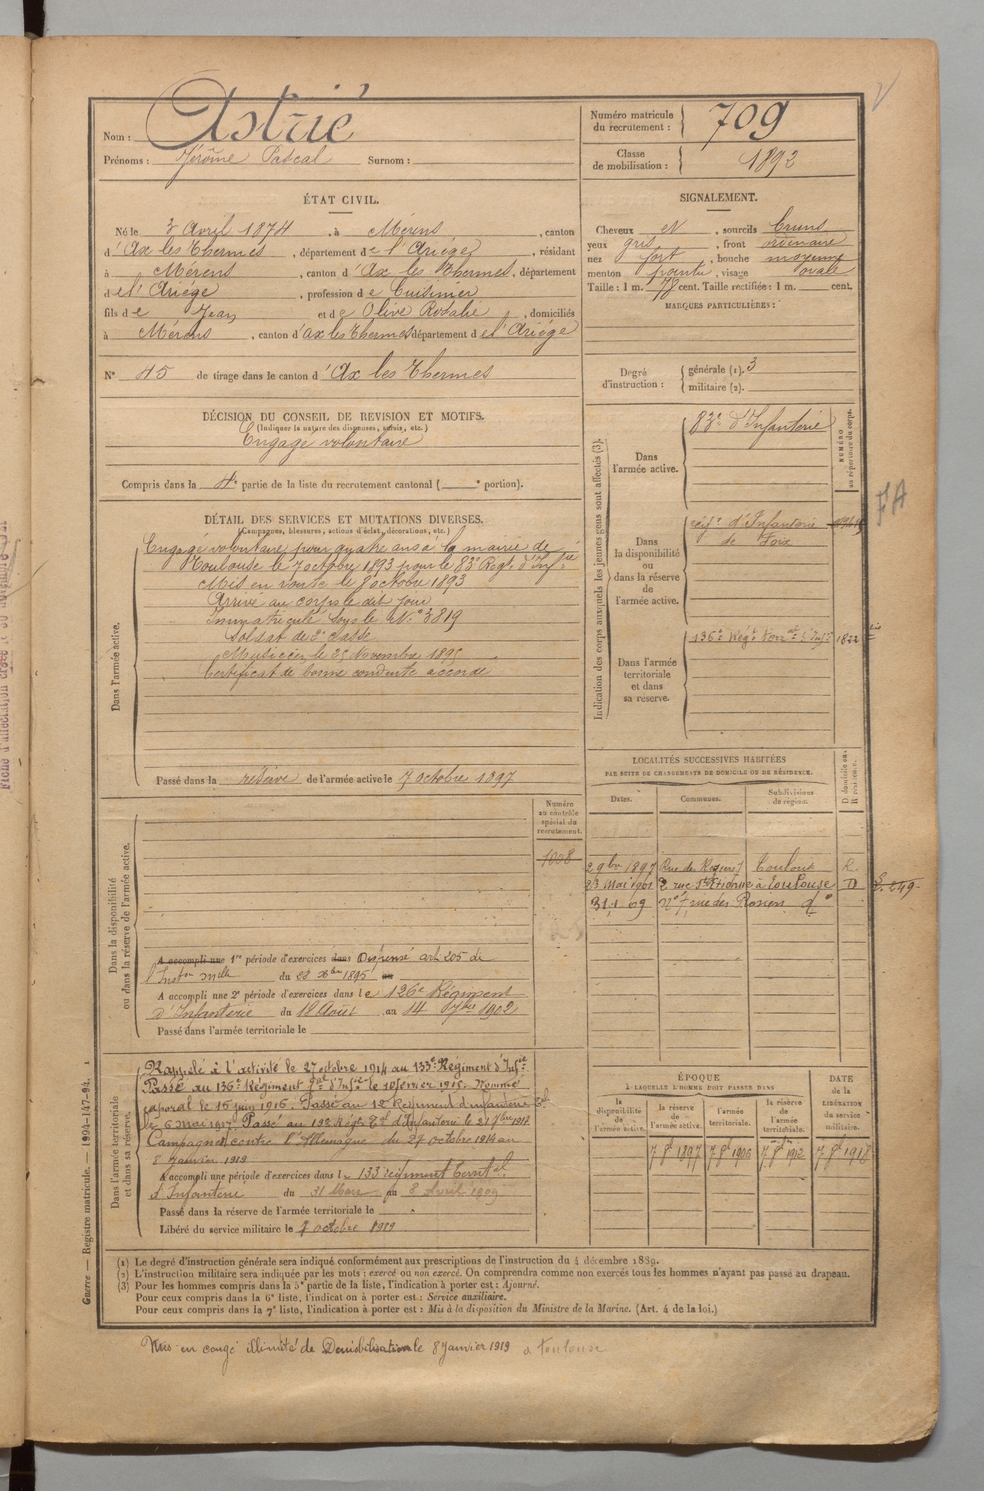 Nom : Astrié
Prénoms : Jérôme Pascal Surnom :
Numéro matricule du recrutement : 709
Classe de mobilisation : 1892
ÉTAT CIVIL.
Né le 3 Avril 1874, à Mérens, canton
d'Ax les Thermes, département de l'Ariége, résidant
à Mérens, canton d'Ax les Thermes, département
de l'Ariége, profession de Cuisinier
fils de Jean et de Olive Rosalie, domiciliés
à Mérens, canton d'ax les Thermes département de l'Ariége
N° 45 de tirage dans le canton d'Ax les Thermes
SIGNALEMENT.
Cheveux et, sourcils bruns
yeux gris, front ordinaire
nez fort, bouche moyenne
menton pointu, visage ovale
Taille : 1 m. 78 cent. Taille rectifiée : 1 m. cent.
MARQUES PARTICULIÈRES :
Degré d'instruction : générale (1). 3
militaire (2).
DÉCISION DU CONSEIL DE REVISION ET MOTIFS.
(Indiquer la nature des dispenses, sursis, etc.)
Engagé volontaire
Compris dans la 4e partie de la liste du recrutement cantonal ( e portion).
DÉTAIL DES SERVICES ET MUTATIONS DIVERSES.
(Campagnes, blessures, actions d'éclat, décorations, etc.)
Dans l'armée active.
Engagé volontaire pour quatre ans à la mairie de
Toulouse le 7 octobre 1893 pour le 83e Régt d'Infie
Mis en route le 8 octobre 1893
Arrivé au corps le dit jour
Immatriculé sous le N° 3819
Soldat de 2e classe
Musicien le 25 Novembre 1895
Certificat de bonne conduite accordé
Passé dans la réserve de l'armée active le 7 octobre 1897
Indication des corps auxquels les jeunes gens sont affectés (3).
NUMÉRO au répertoire du corps.
Dans l'armée active.
83e d'Infanterie
Dans la disponibilité ou dans la réserve de l'armée active.
d'Infanterie
de Foix
Dans l'armée territoriale et dans sa réserve.
136e Régt Torial d'Infie 1822
FA
LOCALITÉS SUCCESSIVES HABITÉES
PAR SUITE DE CHANGEMENTS DE DOMICILE OU DE RÉSIDENCE.
Dates. Communes. Subdivisions de région. D domicile ou R résidence.
29br 1897 Toulouse R.
23 Mai 1901 2 rue St Etienne à Toulouse D
31.1 09 N° 7 rue des do
S. 249
Dans la disponibilité ou dans la réserve de l'armée active.
Numéro au contrôle spécial du recrutement.
1008
A accompli une 1re période d'exercices dans Dispensé art. 205 de
l'Inston mlle du 28 Xbre 1895 au
A accompli une 2e période d'exercices dans le 126e Régiment
d'Infanterie du 18 Août au 14 7bre 1902
Passé dans l'armée territoriale le
Dans l'armée territoriale et dans sa réserve.
Rappelé à l'activité le 27 octobre 1914 au 133e Régiment d'Infie
Passé au 136e Régiment tal d'Infie le 10 février 1915. Nommé
caporal le 16 juin 1916. Passé au 12e Régiment d'infanterie tal
le 6 mai 1917 Passé au Régt Tal d'Infanterie le 21 7bre 1917
Campagne contre l'Allemagne du 27 octobre 1914 au
8 janvier 1919
A accompli une période d'exercices dans le 133 régiment territal
d'Infanterie du 31 Mars au 8 Avril 1909
Passé dans la réserve de l'armée territoriale le
Libéré du service militaire le 7 octobre 1919
ÉPOQUE À LAQUELLE L'HOMME DOIT PASSER DANS
la disponibilité de l'armée active. la réserve de l'armée active. l'armée territoriale. la réserve de l'armée territoriale.
DATE de la LIBÉRATION du service militaire.
7 8bre 1897 7 8bre 1906 7 8bre 1912 7 8bre 1918
(1) Le degré d'instruction générale sera indiqué conformément aux prescriptions de l'instruction du 4 décembre 1889.
(2) L'instruction militaire sera indiquée par les mots : exercé ou non exercé. On comprendra comme non exercés tous les hommes n'ayant pas passé au drapeau.
(3) Pour les hommes compris dans la 5e partie de la liste, l'indication à porter est : Ajourné.
Pour ceux compris dans la 6e liste, l'indication à porter est : Service auxiliaire.
Pour ceux compris dans la 7e liste, l'indication à porter est : Mis à la disposition du Ministre de la Marine. (Art. 4 de la loi.)
Guerre. — Registre matricule. — 1994-147-94. 1
Mis en congé illimité de Démobilisation le 8 Janvier 1919 à Toulouse